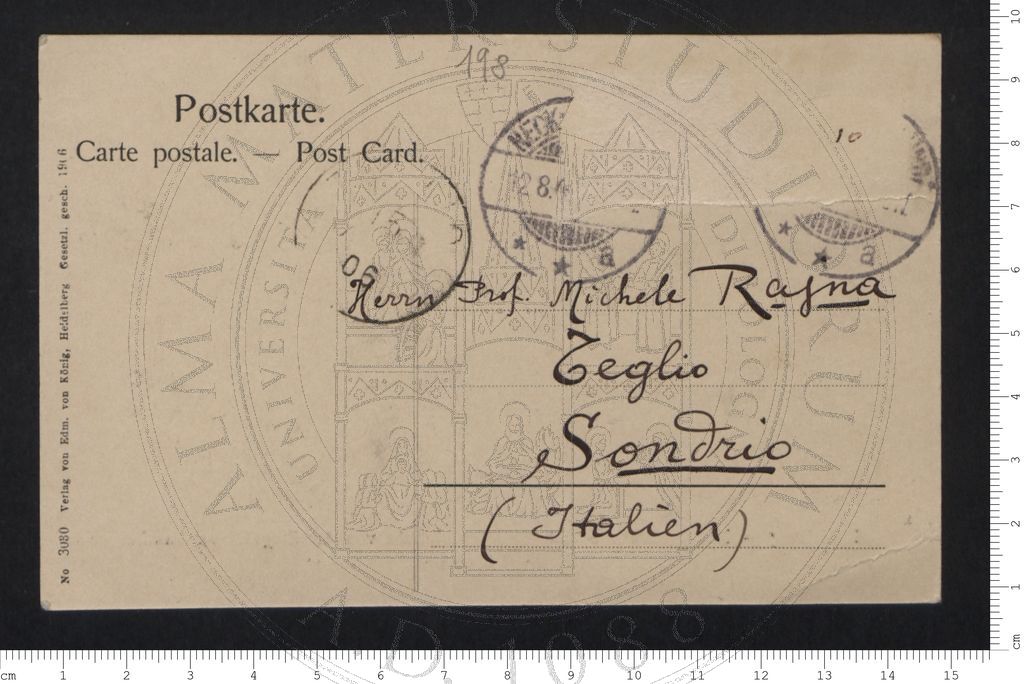 198
Postkarte.
Carte postale. — Post Card.
10
NECK
12 8.
a
a
06
Herrn Prof. Michele Rajna
Teglio
Sondrio
(Italien)
No 3080 Verlag von Edm. von König, Heidelberg Gesetzl. gesch. 1906
ALMA MATER STUDIORUM
A.D. 1088
cm 1 2 3 4 5 6 7 8 9 10 11 12 13 14 15
10
9
8
7
6
5
4
3
2
1
cm